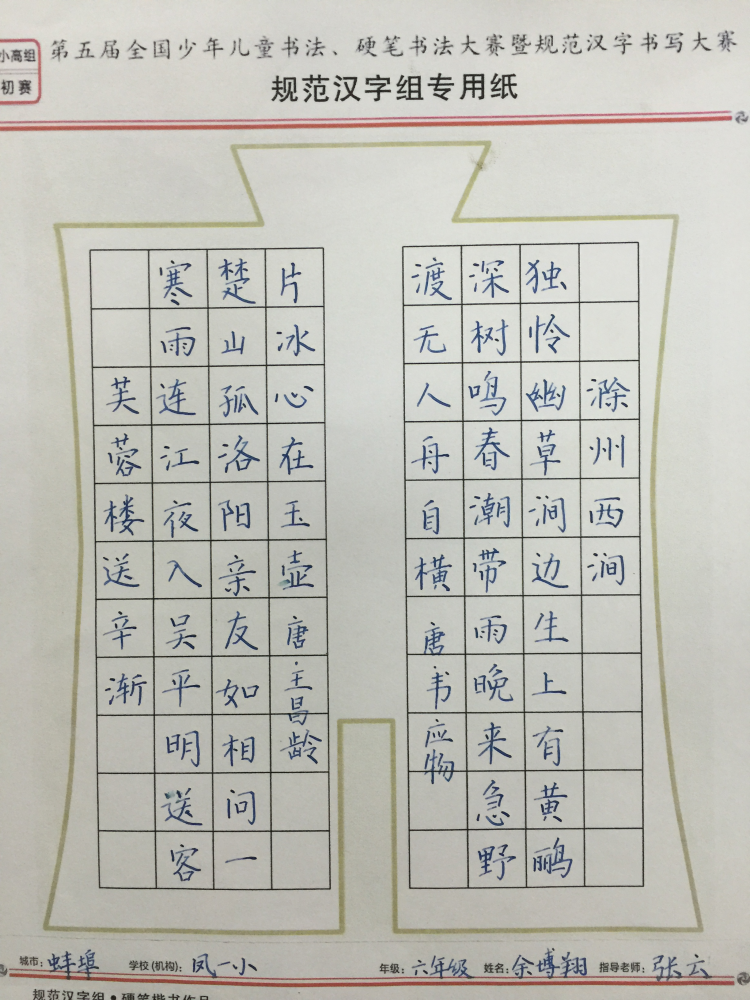 小高组
初赛
第五届全国少年儿童书法、硬笔书法大赛暨规范汉字书写大赛
规范汉字组专用纸
滁州西涧
独怜幽草涧边生上有黄鹂
深树鸣春潮带雨晚来急野
渡无人舟自横唐·韦应物
片冰心在玉壶唐·王昌龄
楚山孤洛阳亲友如相问一
寒雨连江夜入吴平明送客
芙蓉楼送辛渐
城市：蚌埠 学校(机构)：凤一小 年级：六年级 姓名：余博翔 指导老师：张云
规范汉字组·硬笔楷书作品